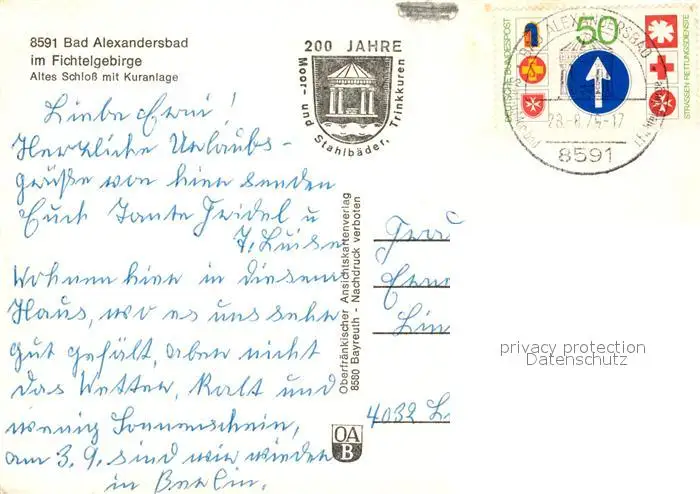 8591 Bad Alexandersbad
im Fichtelgebirge
Altes Schloß mit Kuranlage
200 JAHRE
Moor- und Stahlbäder, Trinkkuren
DEUTSCHE BUNDESPOST
50
STRASSEN-RETTUNGSDIENSTE
BAD ALEXANDERSBAD
8591
Liebe Erni!
Herzliche Urlaubs-
grüße von hier senden
Euch Tante Fridel u
T. Luise
Wohnen hier in diesem
Haus, wo es uns sehr
gut gefällt, aber nicht
das Wetter, kalt und
wenig Sonnenschein,
am 3.9. sind wir wieder
in Berlin.
Oberfränkischer Ansichtskartenverlag
8580 Bayreuth - Nachdruck verboten
OA
B
Frau
4032
privacy protection
Datenschutz